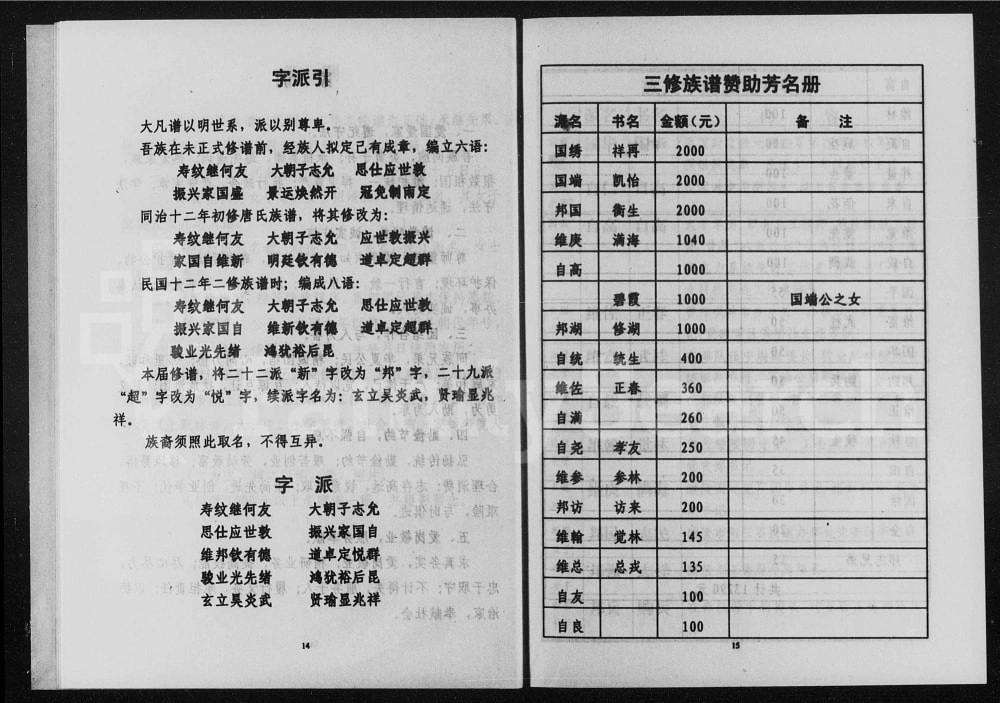 字派引
大凡谱以明世系，派以别尊卑。
吾族在未正式修谱前，经族人拟定己有成章，编立六语：
寿纹继何友 大朝子志允 思仕应世敦
振兴家国盛 景运焕然开 冠免制南定
同治十二年初修唐氏族谱，将其修改为：
寿纹继何友 大朝子志允 应世敦振兴
家国自维新 明廷钦有德 道卓定超群
民国十二年二修族谱时；编成八语：
寿纹继何友 大朝子志允 思仕应世敦
振兴家国自 维新钦有德 道卓定超群
骏业光先绪 鸿犹裕后昆
本届修谱，将二十二派“新”字改为“邦”字，二十九派
“超”字改为“悦”字，续派字名为：玄立昊炎武，贤瑜显兆
祥。
族裔须照此取名，不得互异。
字 派
寿纹继何友 大朝子志允
思仕应世敦 振兴家国自
维邦钦有德 道卓定悦群
骏业光先绪 鸿犹裕后昆
玄立昊炎武 贤瑜显兆祥
14
三修族谱赞助芳名册
派名 书名 金额（元） 备 注
国绣 祥再 2000
国端 凯怡 2000
邦国 衡生 2000
维庚 满海 1040
自高 1000
碧霞 1000 国端公之女
邦湖 修湖 1000
自统 统生 400
维佐 正春 360
自满 260
自尧 孝友 250
维参 参林 200
邦访 访来 200
维翰 觉林 145
维总 总戎 135
自友 100
自良 100
15